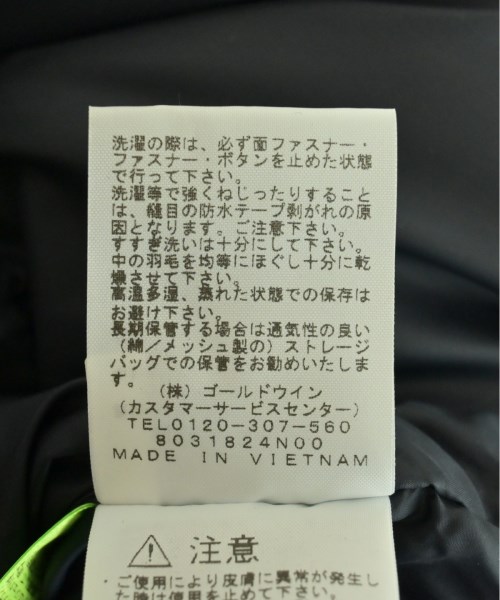 洗濯の際は、必ず面ファスナー・
ファスナー・ボタンを止めた状態
で行って下さい。
洗濯等で強くねじったりすること
は、縫目の防水テープ剥がれの原
因となります。ご注意下さい。
すすぎ洗いは十分にして下さい。
中の羽毛を均等にほぐし十分に乾
燥させて下さい。
高温多湿、蒸れた状態での保存は
お避け下さい。
長期保管する場合は通気性の良い
（綿／メッシュ製の）ストレージ
バッグでの保管をお勧めいたしま
す。
（株）ゴールドウイン
（カスタマーサービスセンター）
TEL0120-307-560
8031824N00
MADE IN VIETNAM
注意
・ご使用により皮膚に異常が発生し
た時は使用を止めて下さい。